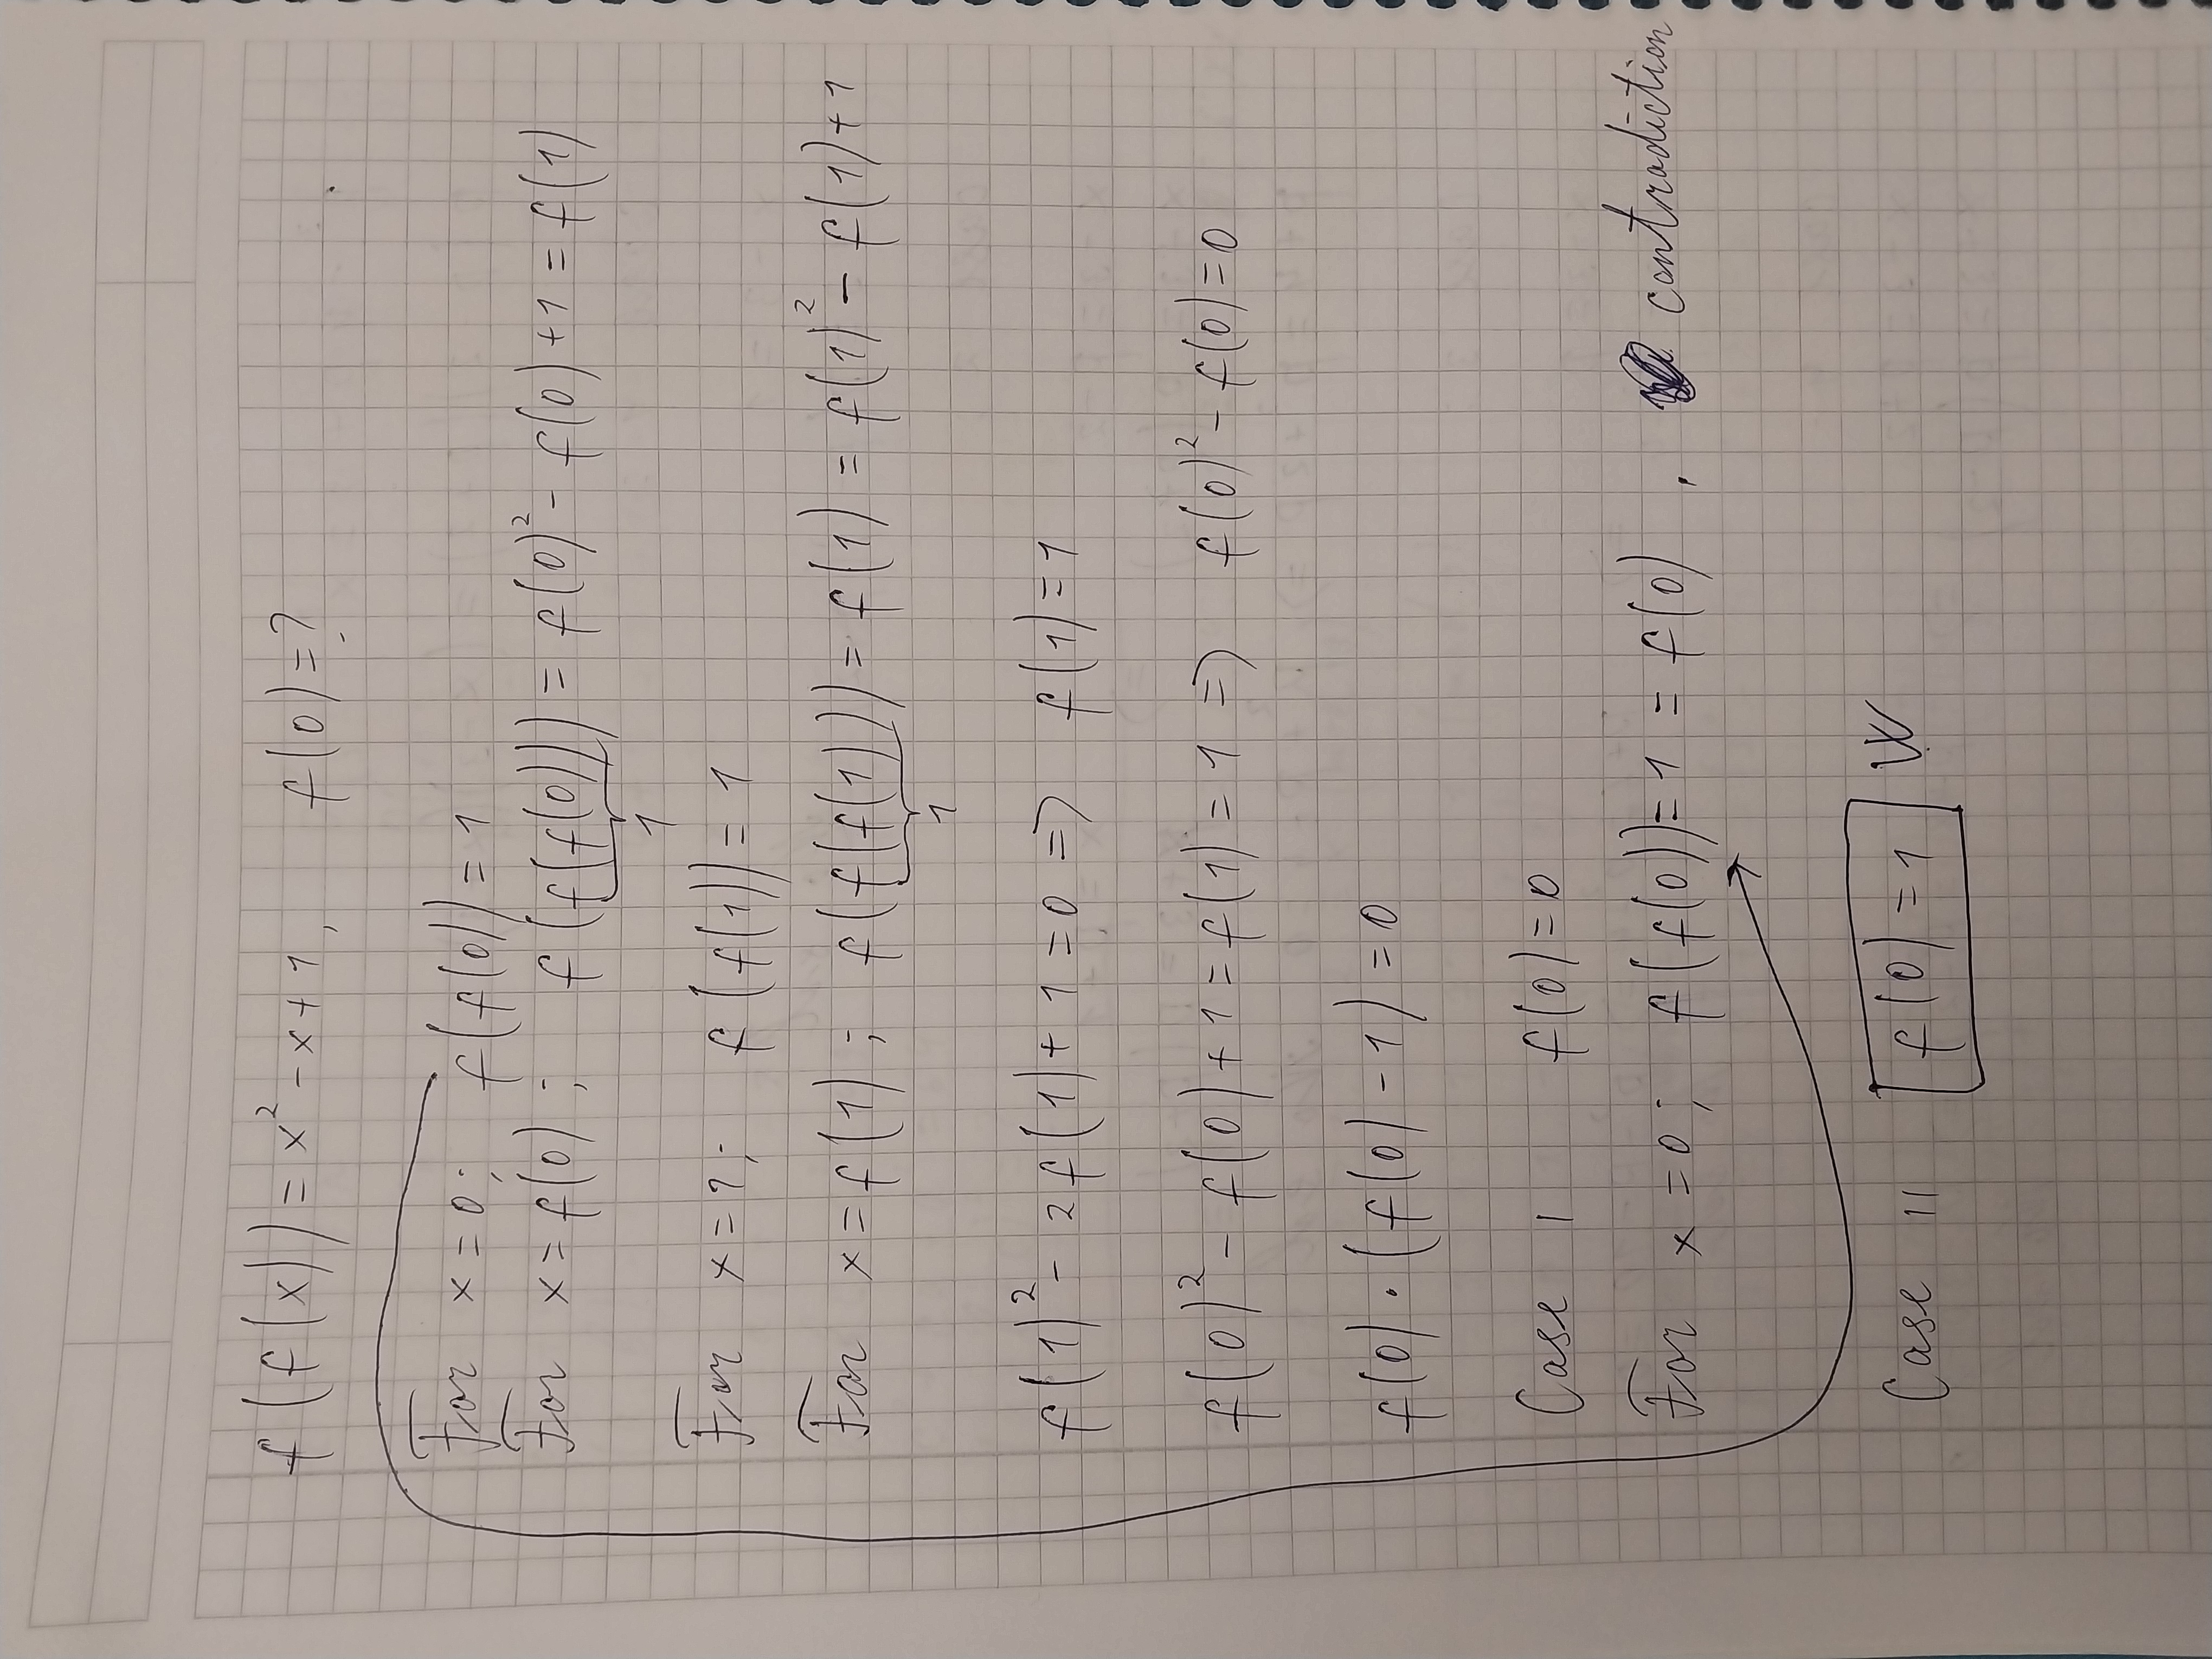 f(f(x)) = x² - x + 1, f(0) = ?
For x = 0; f(f(0)) = 1
For x = f(0); f(f(f(0))) = f(0)² - f(0) + 1 = f(1)
1
For x = 1; f(f(1)) = 1
For x = f(1); f(f(f(1))) = f(1) = f(1)² - f(1) + 1
1
f(1)² - 2f(1) + 1 = 0 => f(1) = 1
f(0)² - f(0) + 1 = f(1) = 1 => f(0)² - f(0) = 0
f(0) · (f(0) - 1) = 0
Case I f(0) = 0
For x = 0; f(f(0)) = 1 = f(0), contradiction
Case II f(0) = 1 W